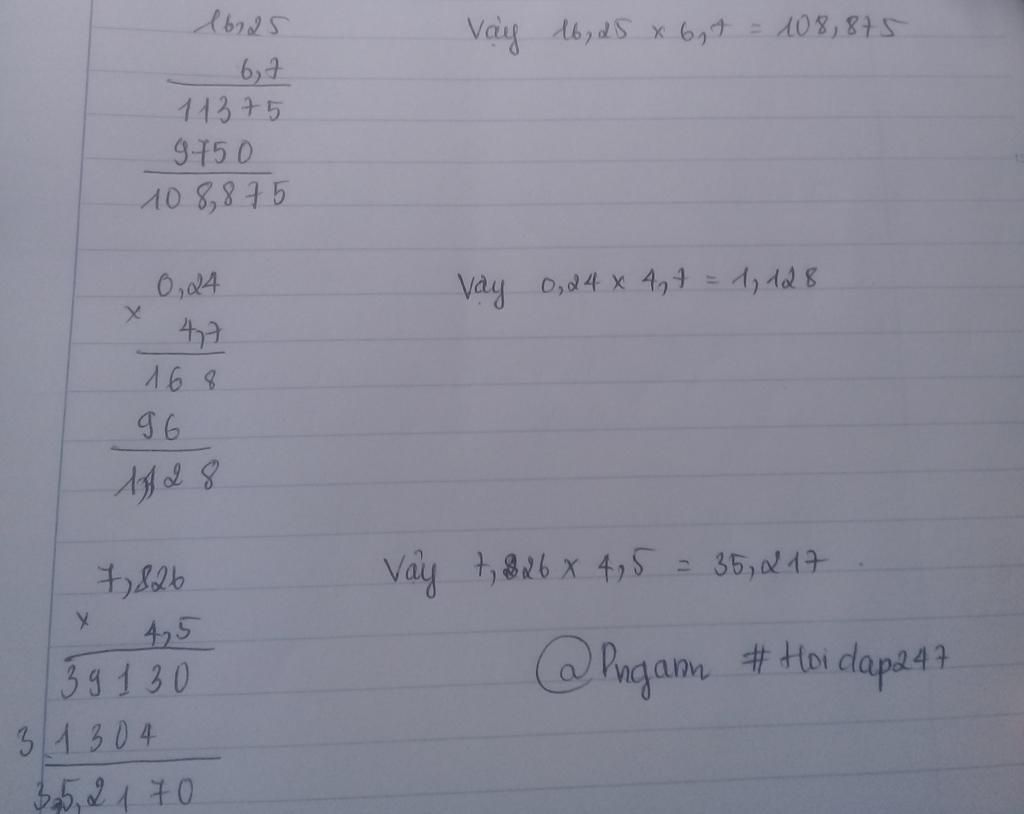 16,25 Vậy 16,25 x 6,7 = 108,875
6,7
11375
9750
108,875
0,24 Vậy 0,24 x 4,7 = 1,128
x
4,7
168
96
1,128
7,826 Vậy 7,826 x 4,5 = 35,217
x
4,5
39130
31304
35,2170
@Pngann #Hoidap247